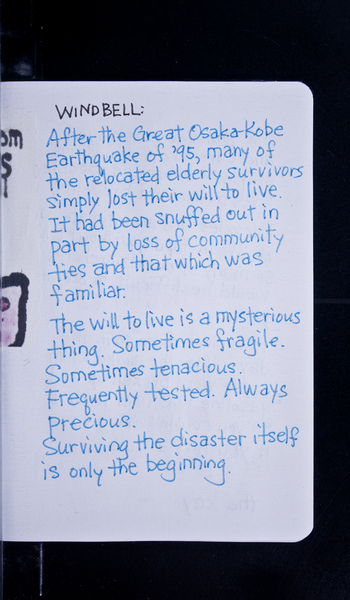 WINDBELL:
After the Great Osaka-Kobe
Earthquake of '95, many of
the relocated elderly survivors
simply lost their will to live.
It had been snuffed out in
part by loss of community
ties and that which was
familiar.
The will to live is a mysterious
thing. Sometimes fragile.
Sometimes tenacious.
Frequently tested. Always
precious.
Surviving the disaster itself
is only the beginning.